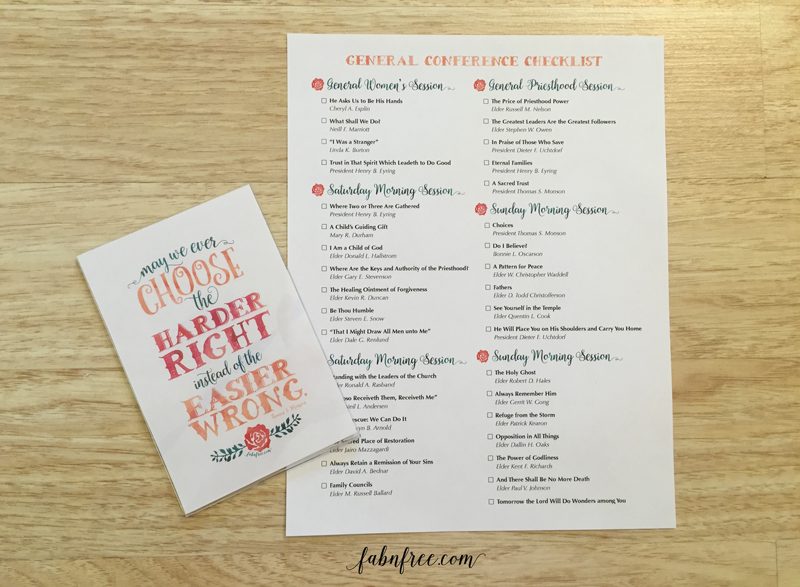 GENERAL CONFERENCE CHECKLIST
General Women's Session
He Asks Us to Be His Hands
Cheryl A. Esplin
What Shall We Do?
Neill F. Marriott
"I Was a Stranger"
Linda K. Burton
Trust in That Spirit Which Leadeth to Do Good
President Henry B. Eyring
Saturday Morning Session
Where Two or Three Are Gathered
President Henry B. Eyring
A Child's Guiding Gift
Mary R. Durham
I Am a Child of God
Elder Donald L. Hallstrom
Where Are the Keys and Authority of the Priesthood?
Elder Gary E. Stevenson
The Healing Ointment of Forgiveness
Elder Kevin R. Duncan
Be Thou Humble
Elder Steven E. Snow
"That I Might Draw All Men unto Me"
Elder Dale G. Renlund
Saturday Morning Session
with the Leaders of the Church
Elder Ronald A. Rasband
Receiveth Them, Receiveth Me"
L. Andersen
We Can Do It
B. Arnold
Place of Restoration
Elder Jairo Mazzagardi
Always Retain a Remission of Your Sins
Elder David A. Bednar
Family Councils
Elder M. Russell Ballard
General Priesthood Session
The Price of Priesthood Power
Elder Russell M. Nelson
The Greatest Leaders Are the Greatest Followers
Elder Stephen W. Owen
In Praise of Those Who Save
President Dieter F. Uchtdorf
Eternal Families
President Henry B. Eyring
A Sacred Trust
President Thomas S. Monson
Sunday Morning Session
Choices
President Thomas S. Monson
Do I Believe?
Bonnie L. Oscarson
A Pattern for Peace
Elder W. Christopher Waddell
Fathers
Elder D. Todd Christofferson
See Yourself in the Temple
Elder Quentin L. Cook
He Will Place You on His Shoulders and Carry You Home
President Dieter F. Uchtdorf
Sunday Morning Session
The Holy Ghost
Elder Robert D. Hales
Always Remember Him
Elder Gerrit W. Gong
Refuge from the Storm
Elder Patrick Kearon
Opposition in All Things
Elder Dallin H. Oaks
The Power of Godliness
Elder Kent F. Richards
And There Shall Be No More Death
Elder Paul V. Johnson
Tomorrow the Lord Will Do Wonders among You
may we ever
CHOOSE
the
HARDER
RIGHT
instead of the
EASIER
WRONG.
fabnfree.com
fabnfree.com